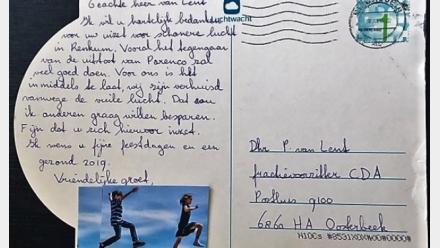 Geachte heer van Lent
Ik wil u hartelijk bedanken
voor uw inzet voor schonere lucht
in Renkum. Vooral het tegengaan
van de uitstoot van Parenco zal
veel goed doen. Voor ons is het
inmiddels te laat, wij zijn verhuisd
vanwege de vuile lucht. Dat zou
ik anderen graag willen besparen.
Fijn dat u zich hiervoor inzet.
Ik wens u fijne feestdagen en een
gezond 2019.
Vriendelijke groet,
luchtwacht
1
Dhr P. van Lent
fractievoorzitter CDA
Postbus 9100
6860 HA Oosterbeek